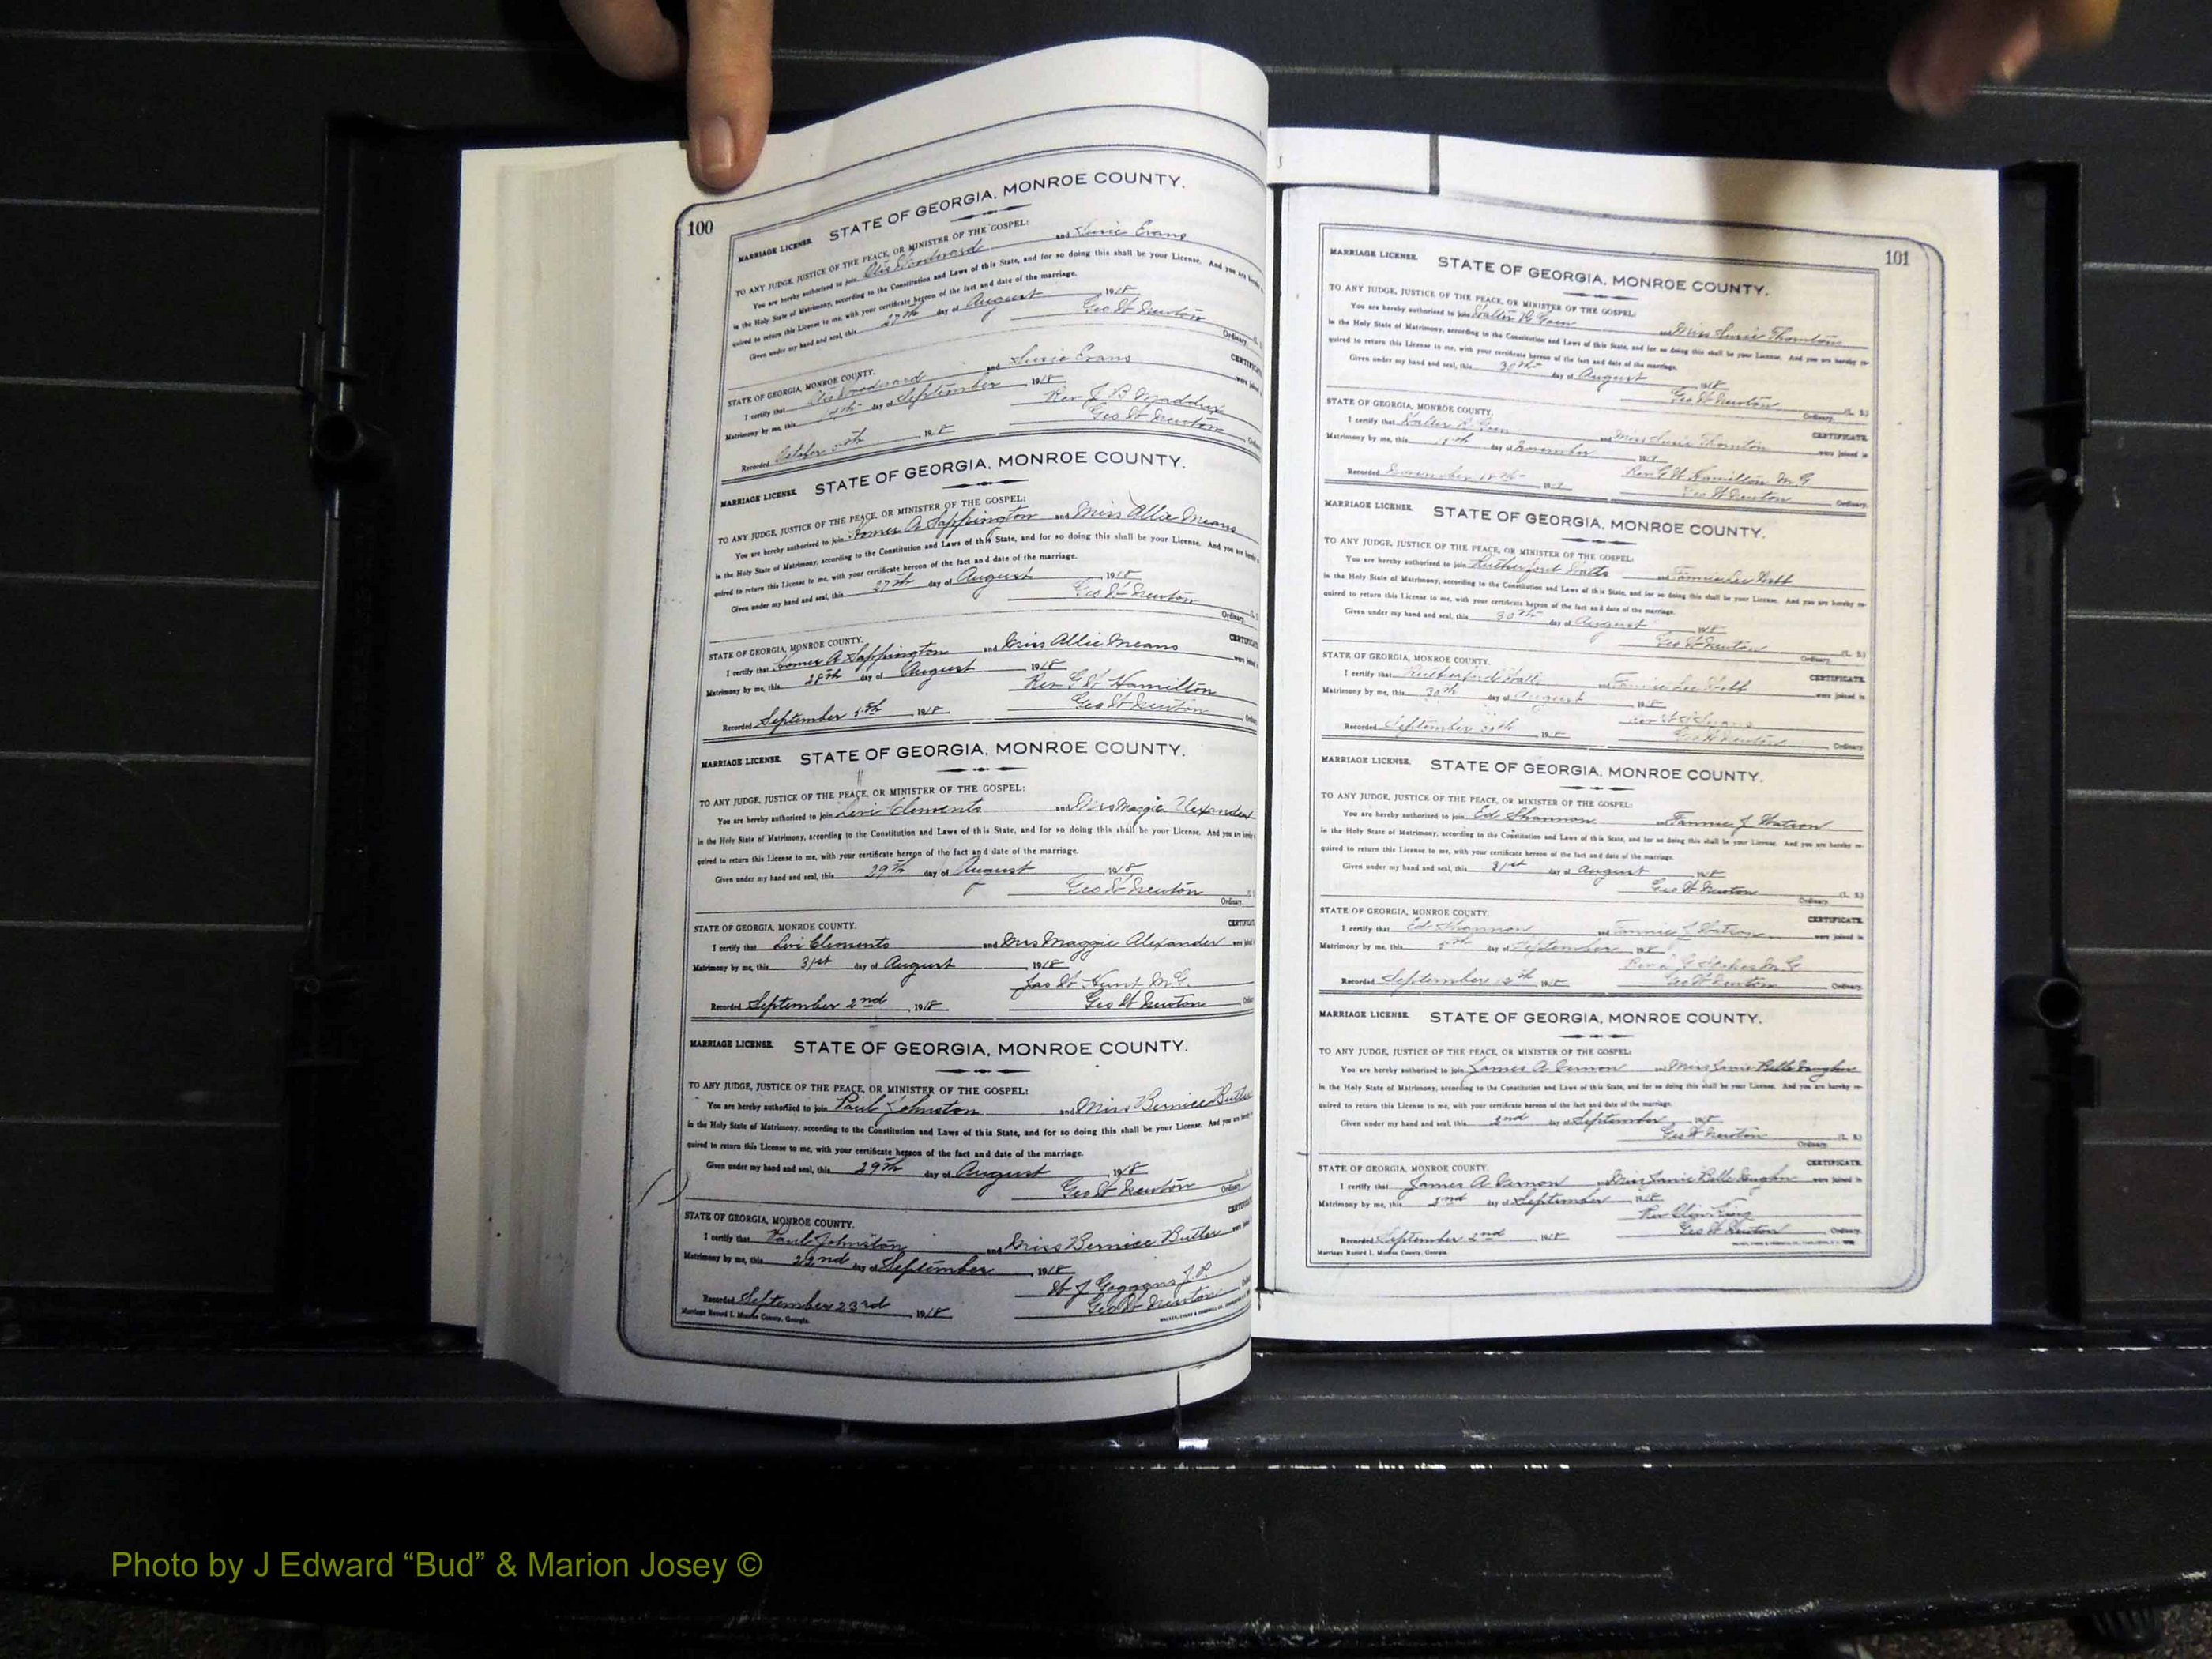 100
MARRIAGE LICENSE. STATE OF GEORGIA, MONROE COUNTY.
TO ANY JUDGE, JUSTICE OF THE PEACE, OR MINISTER OF THE GOSPEL:
You are hereby authorized to join Otis Woodward and Susie Evans
in the Holy State of Matrimony, according to the Constitution and Laws of this State, and for so doing this shall be your License. And you are hereby
quired to return this License to me, with your certificate hereon of the fact and date of the marriage.
Given under my hand and seal, this 27th day of August 1918
Geo W Newton
Ordinary
STATE OF GEORGIA, MONROE COUNTY. CERTIFICATE
I certify that Otis Woodward and Susie Evans were joined
Matrimony by me, this 4th day of September, 1918
Rev J B Maddux
Recorded October 5th, 1918 Geo W Newton
MARRIAGE LICENSE. STATE OF GEORGIA, MONROE COUNTY.
TO ANY JUDGE, JUSTICE OF THE PEACE, OR MINISTER OF THE GOSPEL:
You are hereby authorized to join Homer A Sappington and Miss Allie Means
in the Holy State of Matrimony, according to the Constitution and Laws of this State, and for so doing this shall be your License. And you are hereby
quired to return this License to me, with your certificate hereon of the fact and date of the marriage.
Given under my hand and seal, this 27th day of August, 1918
Geo W Newton
Ordinary
STATE OF GEORGIA, MONROE COUNTY. CERTIFICATE
I certify that Homer A Sappington and Miss Allie Means were joined
Matrimony by me, this 28th day of August, 1918
Rev G W Hamilton
Recorded September 5th, 1918 Geo W Newton
MARRIAGE LICENSE. STATE OF GEORGIA, MONROE COUNTY.
TO ANY JUDGE, JUSTICE OF THE PEACE, OR MINISTER OF THE GOSPEL:
You are hereby authorized to join Levi Clements and Mrs Maggie Alexander
in the Holy State of Matrimony, according to the Constitution and Laws of this State, and for so doing this shall be your License. And you are hereby
quired to return this License to me, with your certificate hereon of the fact and date of the marriage.
Given under my hand and seal, this 29th day of August, 1918
Geo W Newton
Ordinary
STATE OF GEORGIA, MONROE COUNTY. CERTIFICATE
I certify that Levi Clements and Mrs Maggie Alexander were
Matrimony by me, this 31st day of August, 1918
Jas W Hunt M.G.
Recorded September 2nd, 1918 Geo W Newton
MARRIAGE LICENSE. STATE OF GEORGIA, MONROE COUNTY.
TO ANY JUDGE, JUSTICE OF THE PEACE, OR MINISTER OF THE GOSPEL:
You are hereby authorized to join Paul Johnston and Miss Bernice Butler
in the Holy State of Matrimony, according to the Constitution and Laws of this State, and for so doing this shall be your License. And you are hereby
quired to return this License to me, with your certificate hereon of the fact and date of the marriage.
Given under my hand and seal, this 29th day of August, 1918
Geo W Newton Ordinary
STATE OF GEORGIA, MONROE COUNTY. CERTIFICATE
I certify that Paul Johnston and Miss Bernice Butler were
Matrimony by me, this 22nd day of September, 1918
W J J.P.
Recorded September 23rd, 1918 Geo W Newton
Marriage Record I, Monroe County, Georgia.
101
MARRIAGE LICENSE. STATE OF GEORGIA, MONROE COUNTY.
TO ANY JUDGE, JUSTICE OF THE PEACE, OR MINISTER OF THE GOSPEL:
You are hereby authorized to join Walter R and Miss Susie Thornton
in the Holy State of Matrimony, according to the Constitution and Laws of this State, and for so doing this shall be your License. And you are hereby re-
quired to return this License to me, with your certificate hereon of the fact and date of the marriage.
Given under my hand and seal, this 30th day of August, 1918
Geo W Newton (L. S.)
Ordinary.
STATE OF GEORGIA, MONROE COUNTY. CERTIFICATE.
I certify that Walter R and Miss Susie Thornton were joined in
Matrimony by me, this day of November, 191
Rev G W Hamilton M.G
Recorded November 18th, 191 Geo W Newton Ordinary.
MARRIAGE LICENSE. STATE OF GEORGIA, MONROE COUNTY.
TO ANY JUDGE, JUSTICE OF THE PEACE, OR MINISTER OF THE GOSPEL:
You are hereby authorized to join Rutherford Watts and Fannie Lee Webb
in the Holy State of Matrimony, according to the Constitution and Laws of this State, and for so doing this shall be your License. And you are hereby re-
quired to return this License to me, with your certificate hereon of the fact and date of the marriage.
Given under my hand and seal, this 30th day of August 1918
Geo W Newton (L. S.)
Ordinary.
STATE OF GEORGIA, MONROE COUNTY. CERTIFICATE.
I certify that Rutherford Watts and Fannie Lee Webb were joined in
Matrimony by me, this 30th day of August, 1918
Rev
Recorded September 30th, 1918 Geo W Newton Ordinary.
MARRIAGE LICENSE. STATE OF GEORGIA, MONROE COUNTY.
TO ANY JUDGE, JUSTICE OF THE PEACE, OR MINISTER OF THE GOSPEL:
You are hereby authorized to join Ed Shannon and Fannie J Watson
in the Holy State of Matrimony, according to the Constitution and Laws of this State, and for so doing this shall be your License. And you are hereby re-
quired to return this License to me, with your certificate hereon of the fact and date of the marriage.
Given under my hand and seal, this 31st day of August 1918
Geo W Newton (L. S.)
Ordinary.
STATE OF GEORGIA, MONROE COUNTY. CERTIFICATE.
I certify that Ed Shannon and Fannie J Watson were joined in
Matrimony by me, this day of September, 1918
Rev M.G.
Recorded September 12th, 1918 Geo W Newton Ordinary.
MARRIAGE LICENSE. STATE OF GEORGIA, MONROE COUNTY.
TO ANY JUDGE, JUSTICE OF THE PEACE, OR MINISTER OF THE GOSPEL:
You are hereby authorized to join James A Vernon and Miss Janie Belle Vaughn
in the Holy State of Matrimony, according to the Constitution and Laws of this State, and for so doing this shall be your License. And you are hereby re-
quired to return this License to me, with your certificate hereon of the fact and date of the marriage.
Given under my hand and seal, this 2nd day of September, 1918
Geo W Newton (L. S.)
Ordinary.
STATE OF GEORGIA, MONROE COUNTY. CERTIFICATE.
I certify that James A Vernon and Miss Janie Belle Vaughn were joined in
Matrimony by me, this 2nd day of September, 1918
Rev Olin King
Recorded September 2nd, 1918 Geo W Newton Ordinary.
Marriage Record I, Monroe County, Georgia.
Photo by J Edward “Bud” & Marion Josey ©